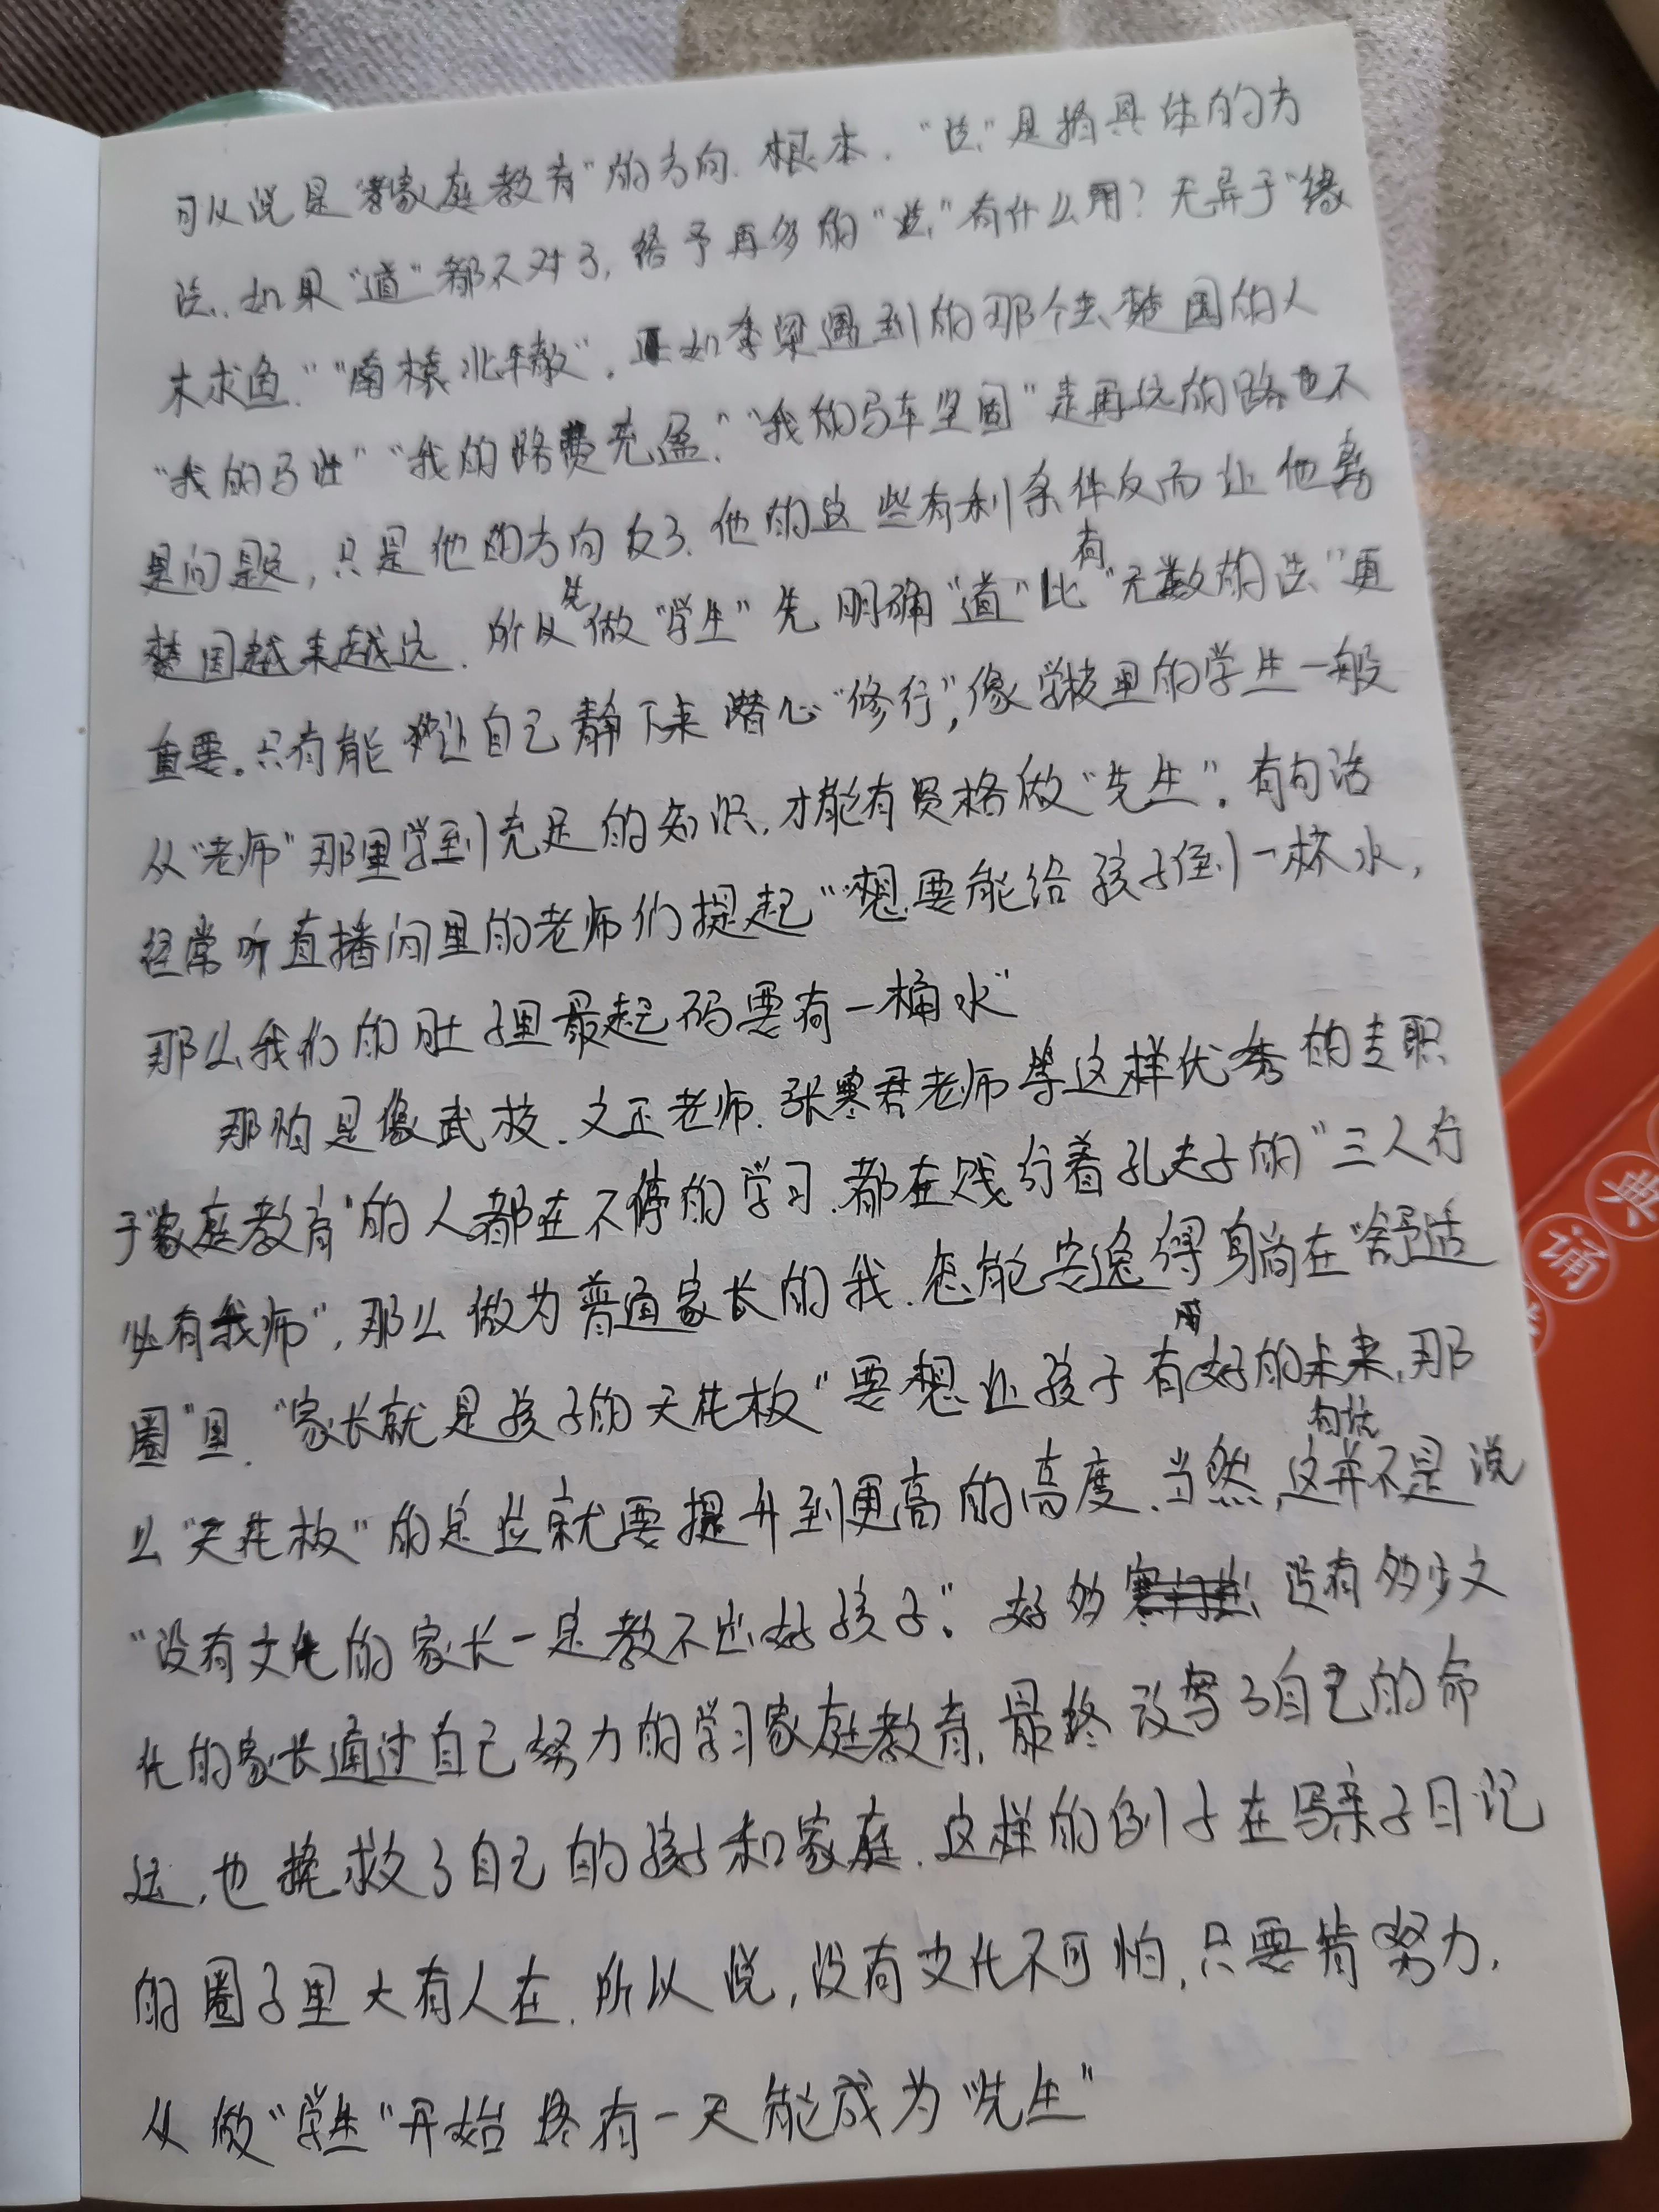 可以说是“家庭教育”的方向、根本。“法”是指具体的方
法、如果“道”都不对了，给予再多的“法”有什么用？无异于“缘
木求鱼”“南辕北辙”。正如季梁遇到的那个去楚国的人
“我的马壮”“我的路费充盈”“我的马车坚固”走再远的路也不
是问题，只是他的方向反了、他的这些有利条件反而让他离
楚国越来越远、所以先做“学生”先明确“道”比有“无数的法”更
重要。只有能够让自己静下来潜心“修行”，像学校里的学生一般
从“老师”那里学到充足的知识，才能有资格做“先生”。有句话
经常听直播间里的老师们提起“想要能给孩子倒一杯水，
那么我们的肚子里最起码要有一桶水”
那怕是像武校、文正老师、张寒君老师等这样优秀的专职
于“家庭教育”的人都在不停的学习、都在践行着孔夫子的“三人行
必有我师”，那么做为普通家长的我、怎能安逸得躺在“舒适
圈”里、“家长就是孩子的天花板”要想让孩子有好的未来，那
么“天花板”的定位就要提升到更高的高度、当然，这并不是说
“没有文化的家长一定教不出好孩子”。好多没有多少文
化的家长通过自己努力的学习家庭教育，最终改写了自己的命
运，也挽救了自己的孩子和家庭、这样的例子在写亲子日记
的圈子里大有人在、所以说，没有文化不可怕，只要肯努力，
从做“学生”开始终有一天能成为“先生”
典
诵